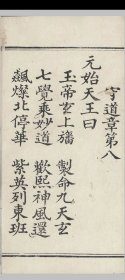 守道章第八
元始天王曰
玉帝玄上旛　製命九天玄
七覺乘妙道　歡熙神風還
飆燦北停華　紫英列東班